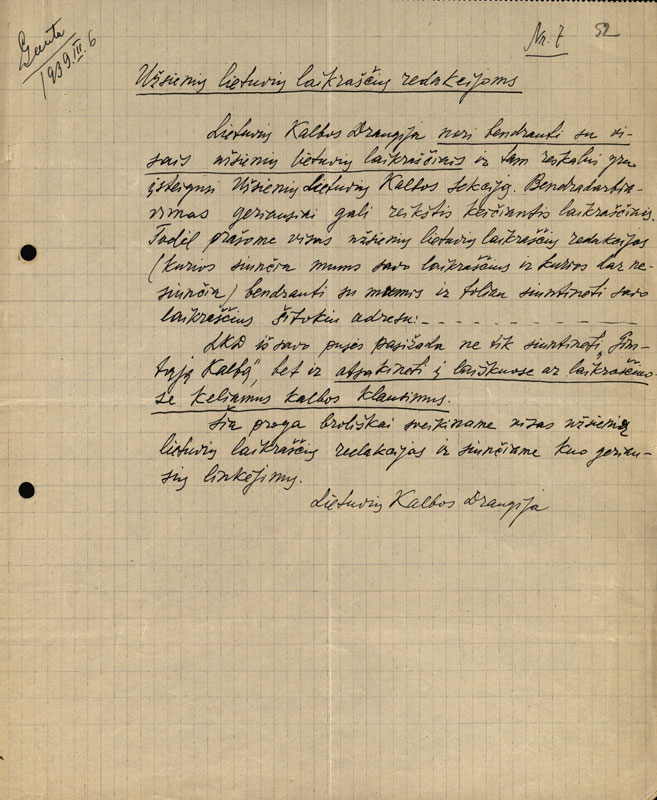 Gauta
1939.III.6
Nr. 7
52
Užsienių lietuvių laikraščių redakcijoms
Lietuvių Kalbos Draugija nori bendrauti su vi-
sais užsienių lietuvių laikraščiais ir tam reikalui yra
įsteigusi Užsienių Lietuvių Kalbos sekciją. Bendradarbia-
vimas geriausiai gali reikštis keičiantis laikraščiais.
Todėl prašome visas užsienių lietuvių laikraščių redakcijas
(kurios siunčia mums savo laikraščius ir kurios dar ne-
siunčia) bendrauti su mumis ir toliau siuntinėti savo
laikraščius šitokiu adresu:
LKD iš savo pusės pasižada ne tik siuntinėti „Gim-
tąją Kalbą“, bet ir atsakinėti į laiškuose ar laikraščiuo-
se keliamus kalbos klausimus.
Šia proga broliškai sveikiname visas užsienių
lietuvių laikraščių redakcijas ir siunčiame kuo geriau-
sių linkėjimų.
Lietuvių Kalbos Draugija